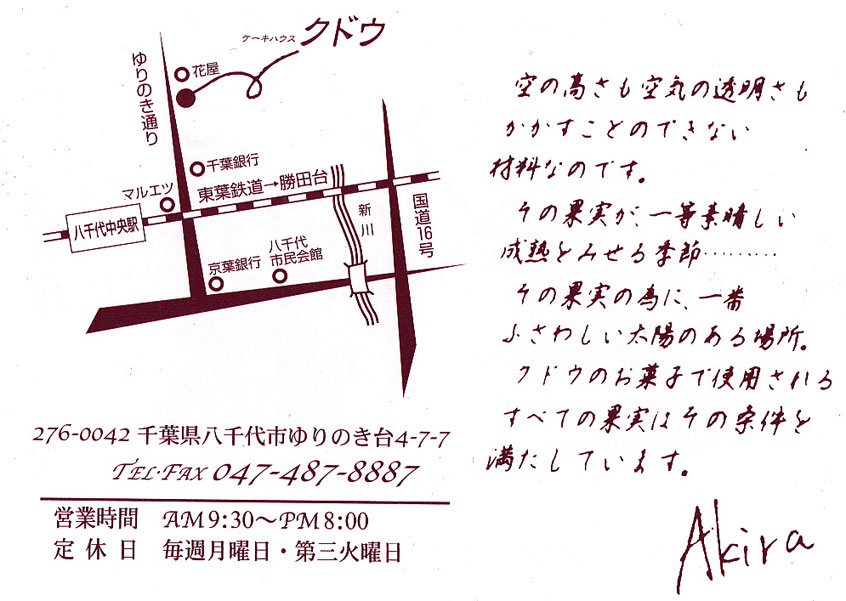 ケーキハウス クドウ
ゆりのき通り
花屋
千葉銀行
マルエツ
東葉鉄道→勝田台
八千代中央駅
新川
国道16号
京葉銀行
八千代
市民会館
276-0042 千葉県八千代市ゆりのき台4-7-7
TEL・FAX 047-487-8887
営業時間 AM9:30～PM8:00
定休日 毎週月曜日・第三火曜日
空の高さも空気の透明さも
かかすことのできない
材料なのです。
その果実が、一等素晴しい
成熟をみせる季節………
その果実の為に、一番
ふさわしい太陽のある場所。
クドウのお菓子で使用される
すべての果実はその条件を
満たしています。
Akira